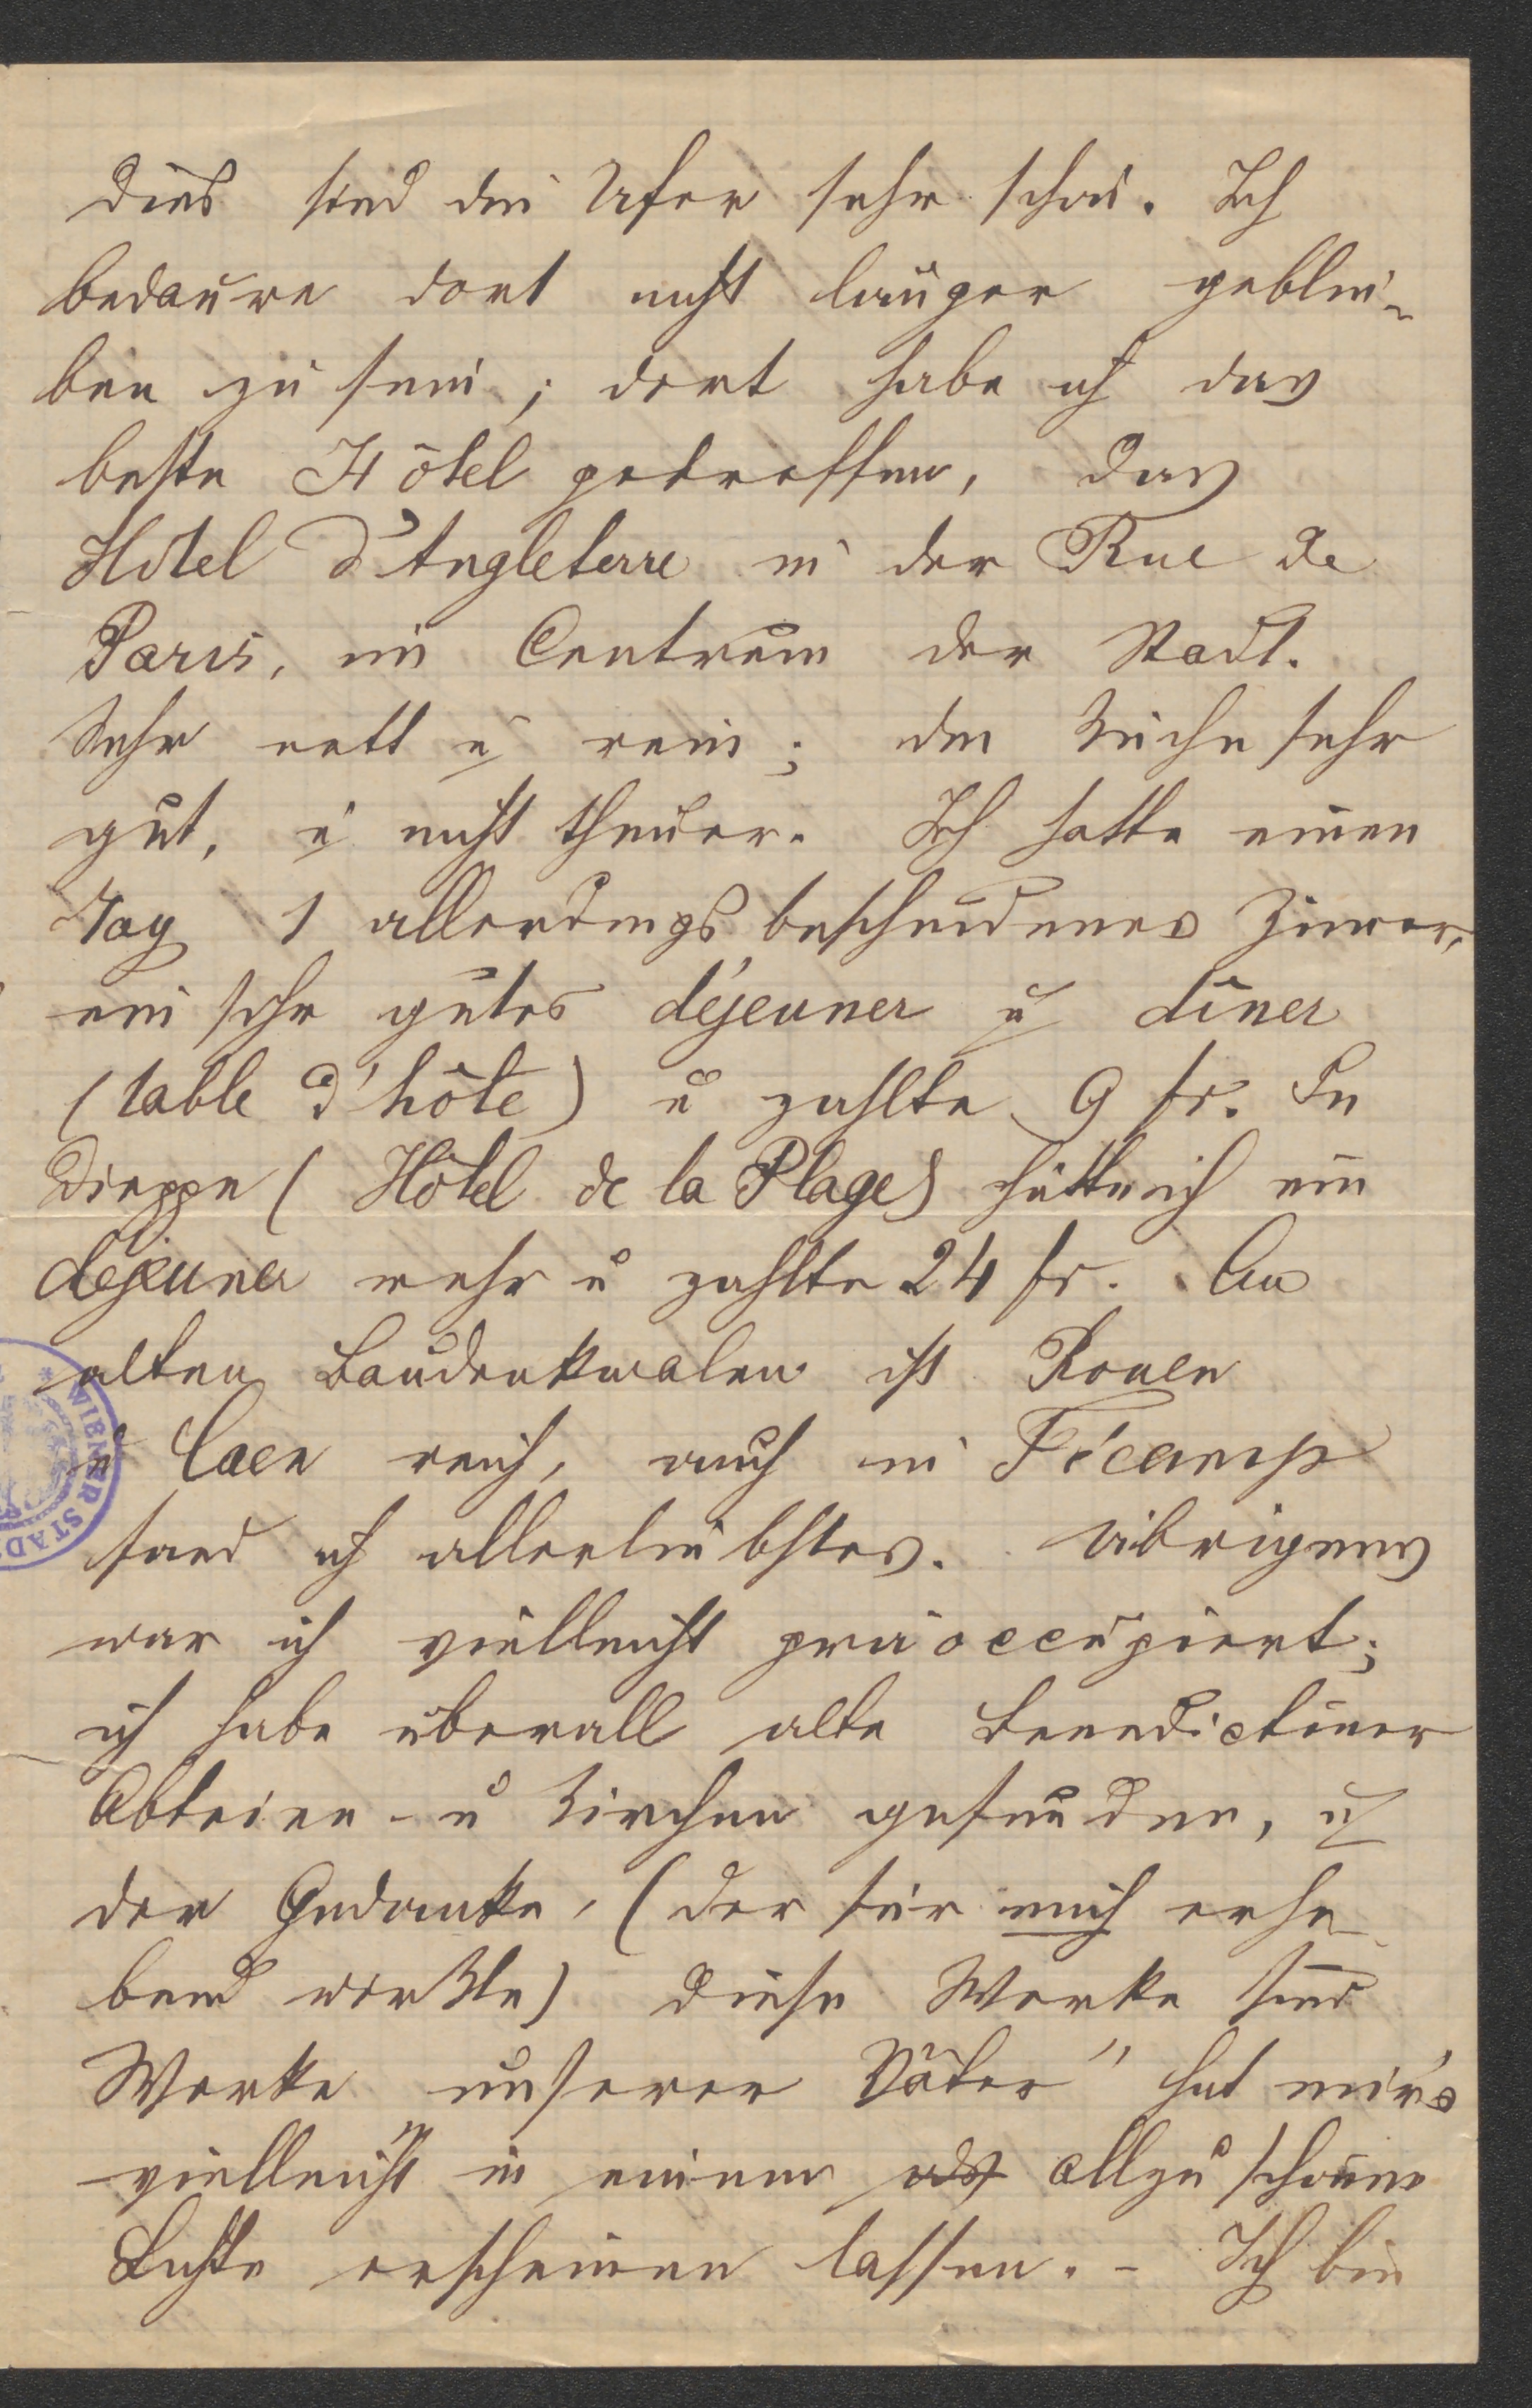 dies sind die Ufer sehr schön. Ich
bedaure dort nicht länger geblei-
ben zu sein; dort habe ich das
beste Hôtel getroffen, das
Hôtel d'Angleterre in der Rue de
Paris, im Centrum der Stadt.
Sehr nett u rein; die Küche sehr
gut, u nicht theuer. Ich hatte einen
Tag 1 allerdings bescheidenes Zimer,
ein sehr gutes déjeuner u dîner
(table d'hôte) u zahlte 9 fr. In
Dieppe (Hôtel de la Plage) hatte ich ein
déjeuner mehr u zahlte 24 fr. An
alten Baudenkmalen ist Rouen
u Caen reich, auch in Fécamp
fand ich allerliebstes. Uibrigens
war ich vielleicht präoccupiert;
ich habe überall alte Benedictiner
Abteien- u Kirchen gefunden, u
der Gedanke, (der für mich erhe-
bend wirkte) diese Werke sind
Werke unserer Väter" hat mir's
vielleicht in einem allzu schönem
Lichte erscheinen lassen. - Ich bin
WIENER STADT